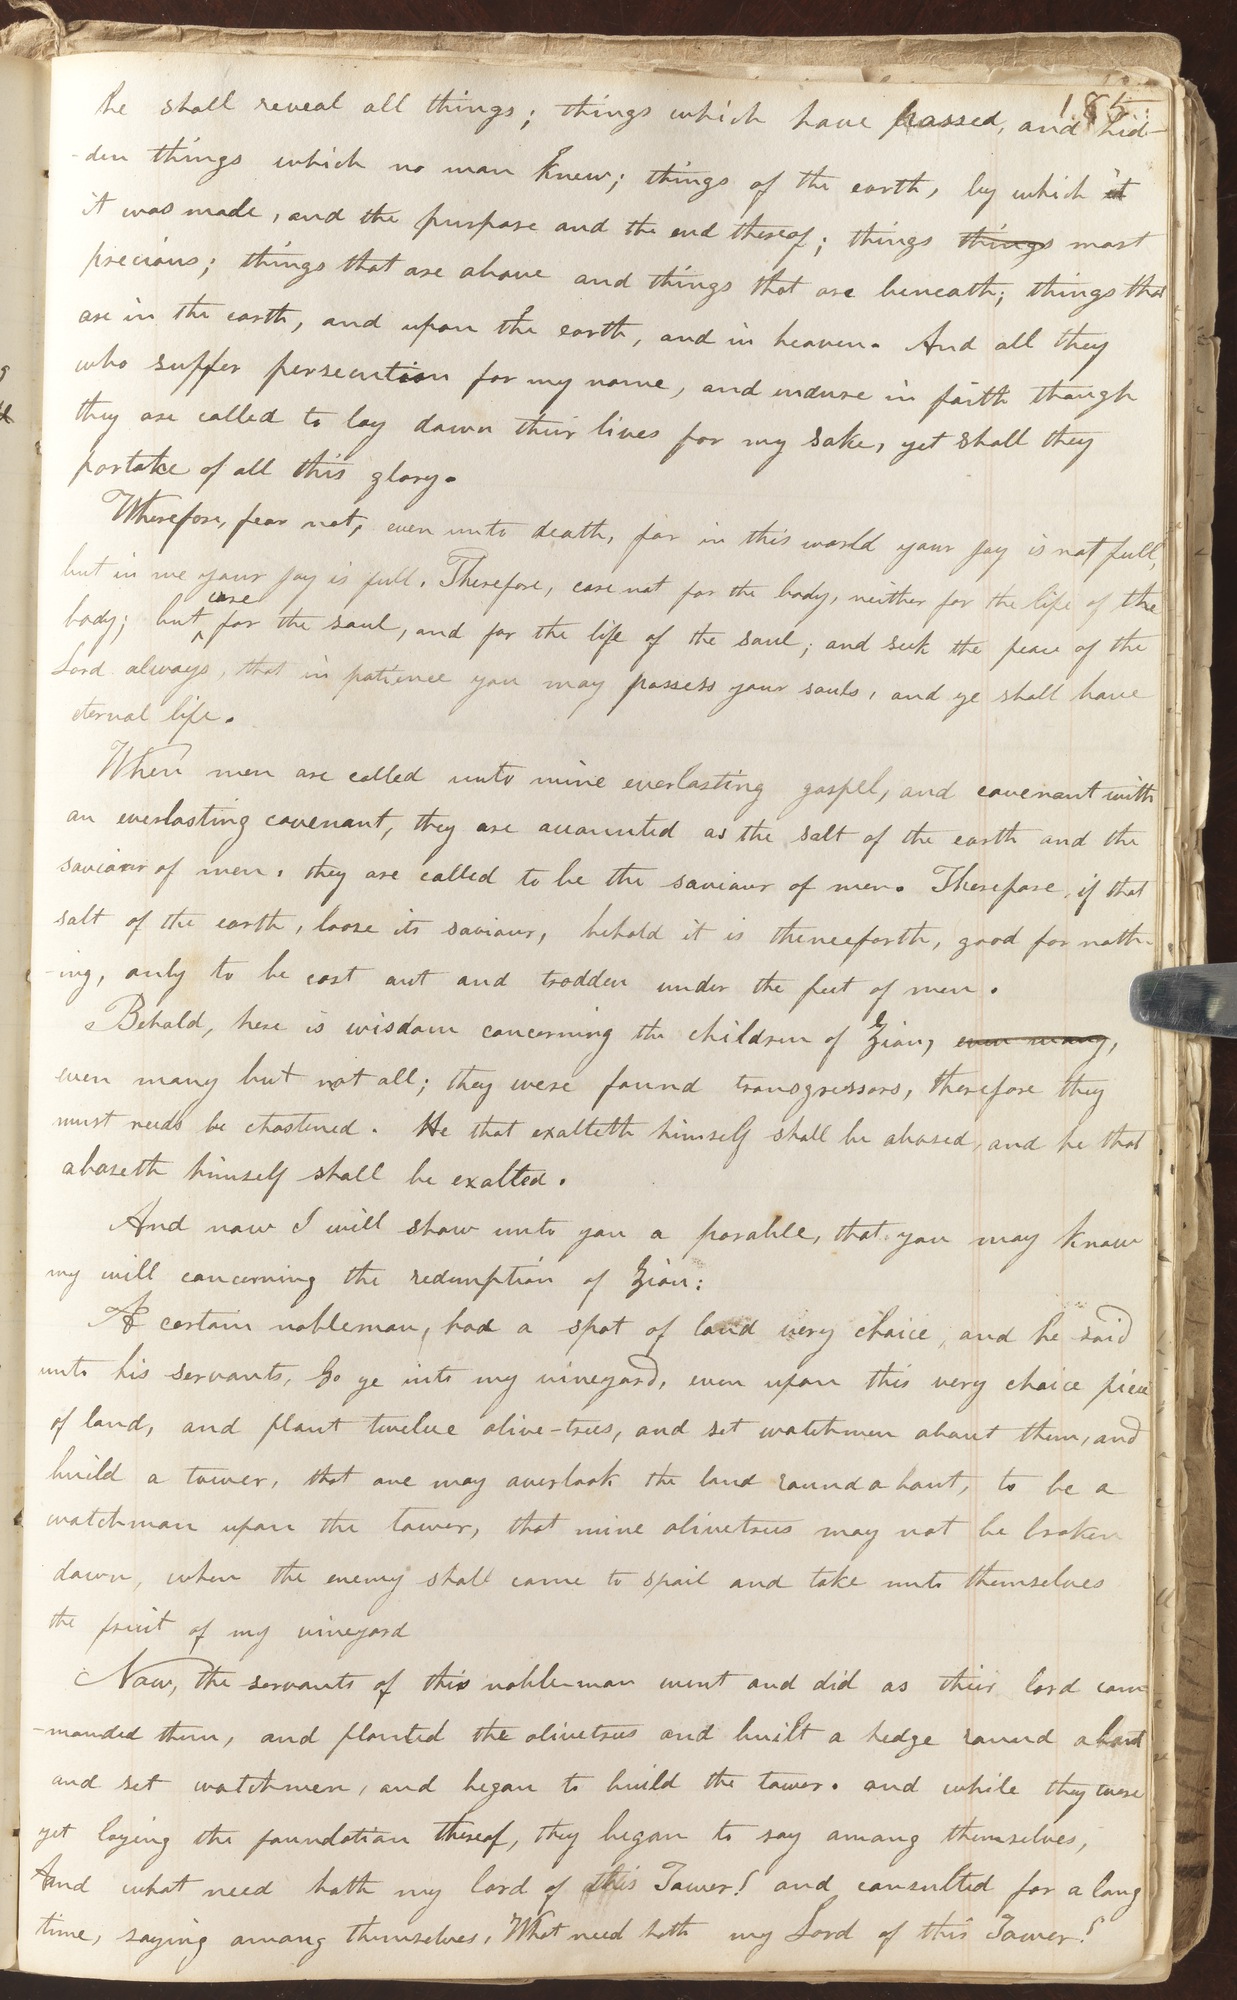 185
he shall reveal all things; things which have passed, and hid-
-den things which no man knew; things of the earth, by which it
it was made, and the purpose and the end thereof; things things most
precious; things that are above and things that are beneath; things that
are in the earth, and upon the earth, and in heaven. And all they
who suffer persecution for my name, and endure in faith though
they are called to lay down their lives for my sake, yet shall they
partake of all this glory.
Wherefore, fear not, even unto death, for in this world your joy is not full,
but in me your joy is full. Therefore, care not for the body, neither for the life of the
care
body; but ^ for the soul, and for the life of the soul; and seek the peace of the
Lord always, that in patience you may possess your souls, and ye shall have
eternal life.
When men are called unto mine everlasting gospel, and covenant with
an everlasting covenant, they are accounted as the salt of the earth and the
saviour of men. they are called to be the saviour of men. Therefore, if that
salt of the earth, loose its saviour, behold it is thenceforth, good for noth-
-ing, only to be cast out and trodden under the feet of men.
Behold, here is wisdom concerning the children of Zion, even many,
even many but not all; they were found transgressors, therefore they
must needs be chastened. He that exalteth himself shall be abased, and he that
abaseth himself shall be exalted.
And now I will show unto you a parable, that you may know
my will concerning the redemption of Zion:
A certain nobleman, had a spot of land very choice, and he said
unto his servants, Go ye into my vineyard, even upon this very choice piece
of land, and plant twelve olive-trees, and set watchmen about them, and
build a tower, that one may overlook the land round about, to be a
watchman upon the tower, that mine olivetrees may not be broken
down, when the enemy shall come to spoil and take unto themselves
the fruit of my vineyard
Now, the servants of this noble-man went and did as their lord com-
-manded them, and planted the olivetrees and built a hedge round about
and set watchmen, and began to build the tower. and while they were
yet laying the foundation thereof, they began to say among themselves,
And what need hath my lord of this Tower! and consulted for a long
time, saying among themselves, What need hath my Lord of this Tower!